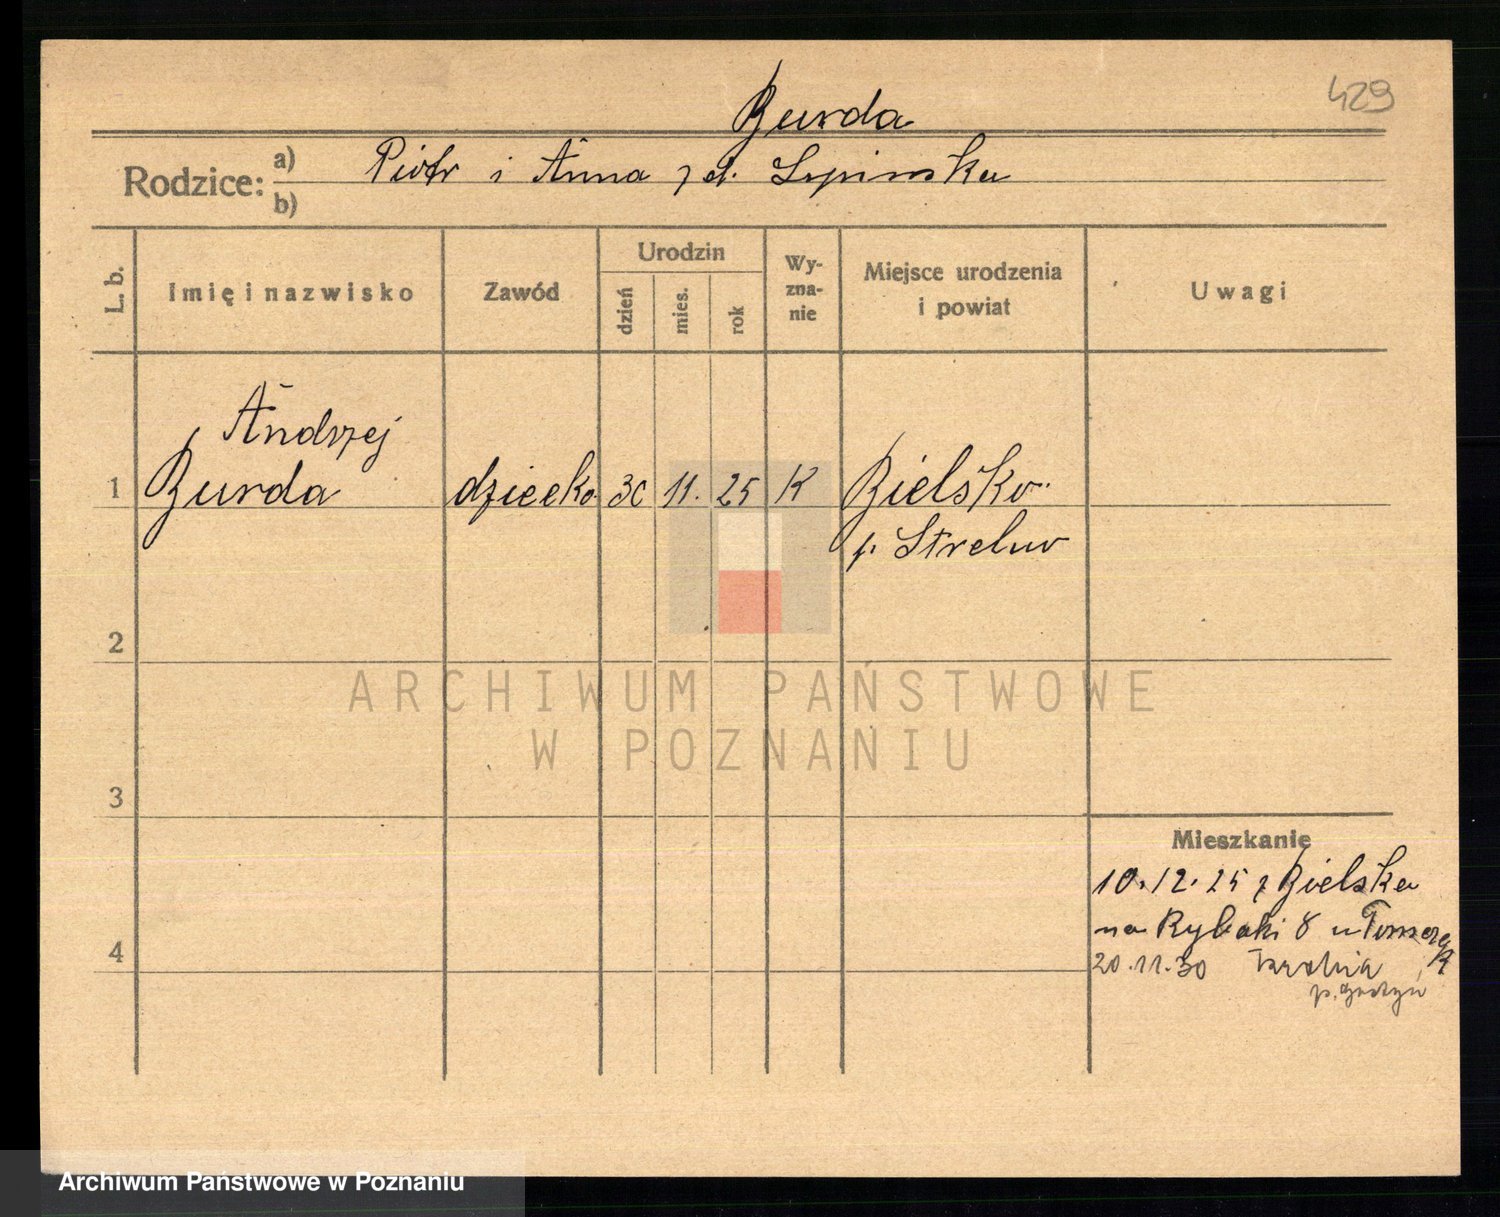 429
Burda
Rodzice: a) Piotr i Anna z d. Lipinska
b)
L. b.
Imię i nazwisko
Zawód
Urodzin
dzień
mies.
rok
Wy-
zna-
nie
Miejsce urodzenia
i powiat
Uwagi
1
Andrzej
Burda
dziecko
30
11.
25
K
Bielsko
p. Strelno
2
ARCHIWUM PAŃSTWOWE
W POZNANIU
3
Mieszkanie
10.12.25 z Bielska
na Rybaki 8 u
4
20.11.30
p. Gostyń
Archiwum Państwowe w Poznaniu